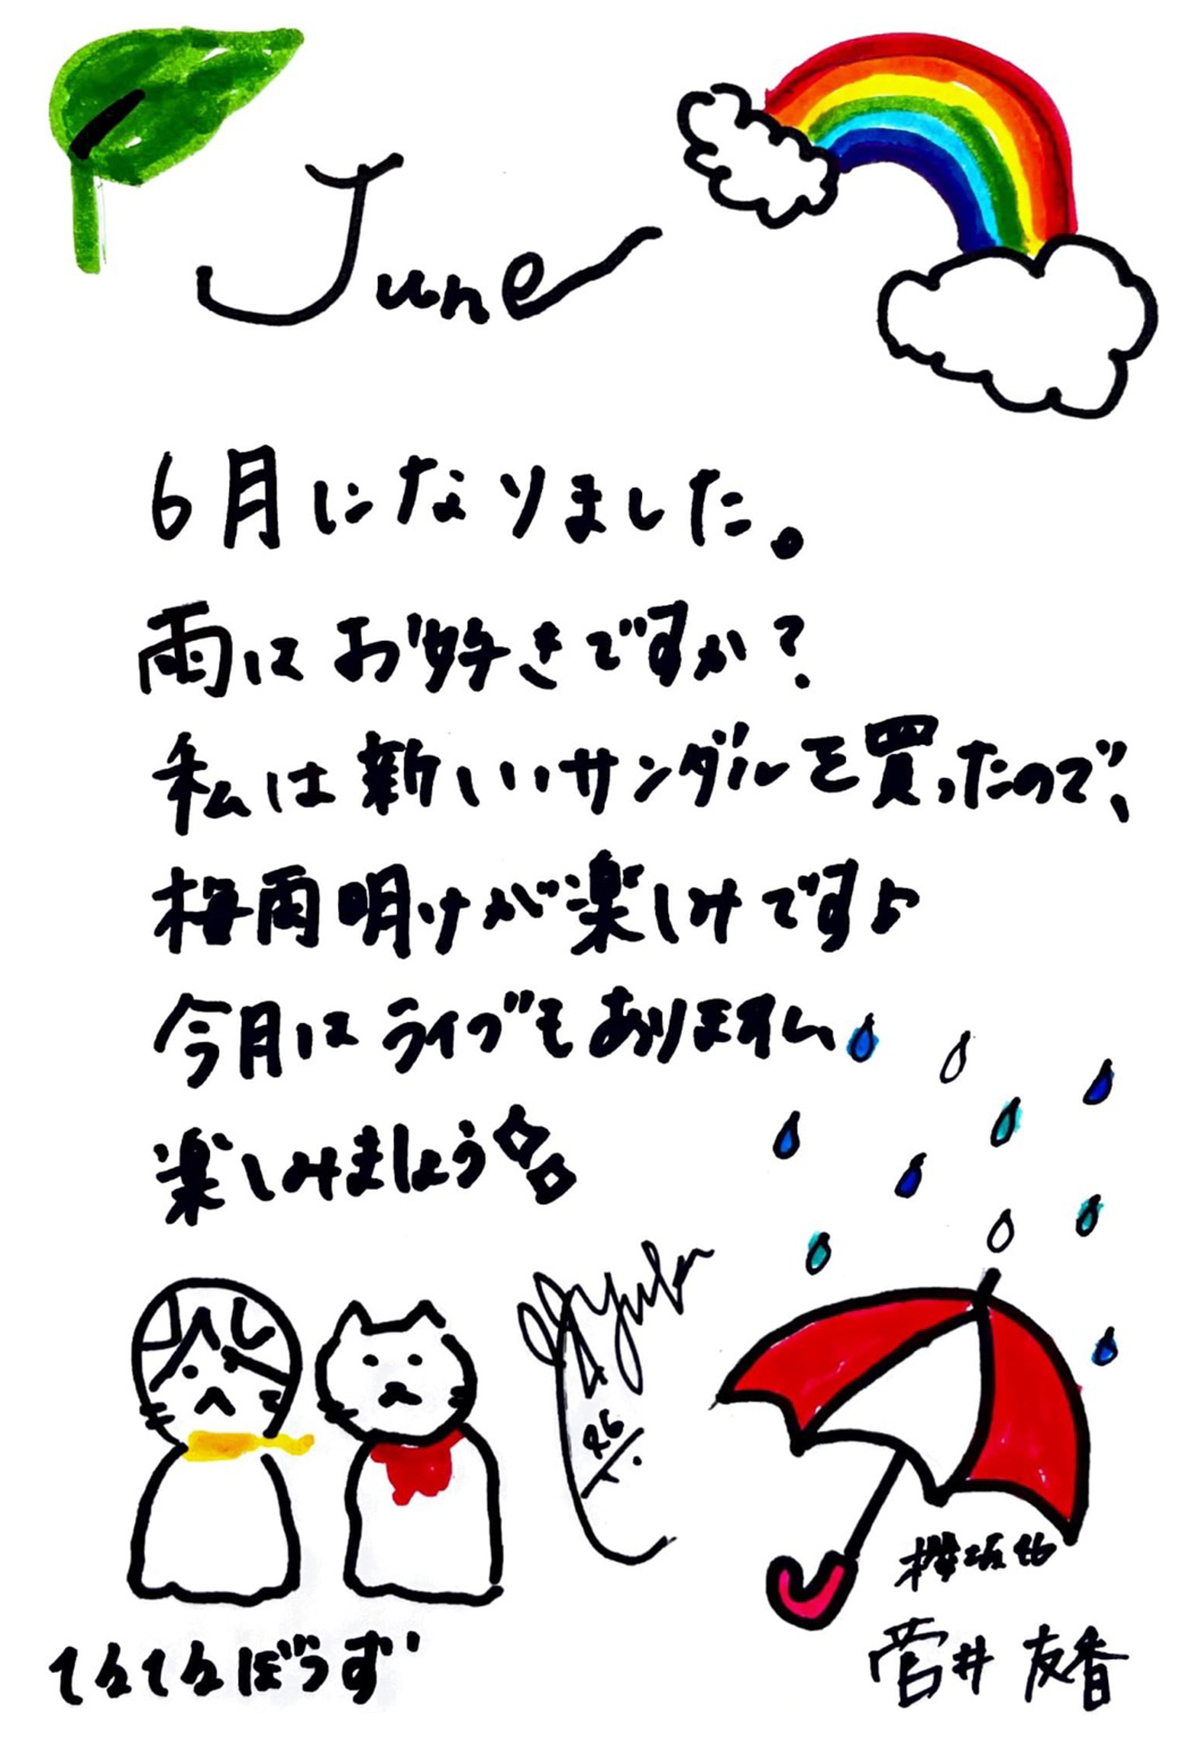 June
6月になりました。
雨はお好きですか?
私は新しいサンダルを買ったので、
梅雨明けが楽しみです♪
今月はライブもあります!!
楽しみましょう
Yuka
46
てるてるぼうず
櫻坂46
菅井 友香